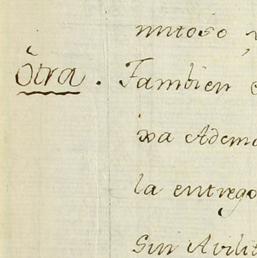 mitoso
Otra. Tambien
xa Adema
la entrego
Sin Avilit